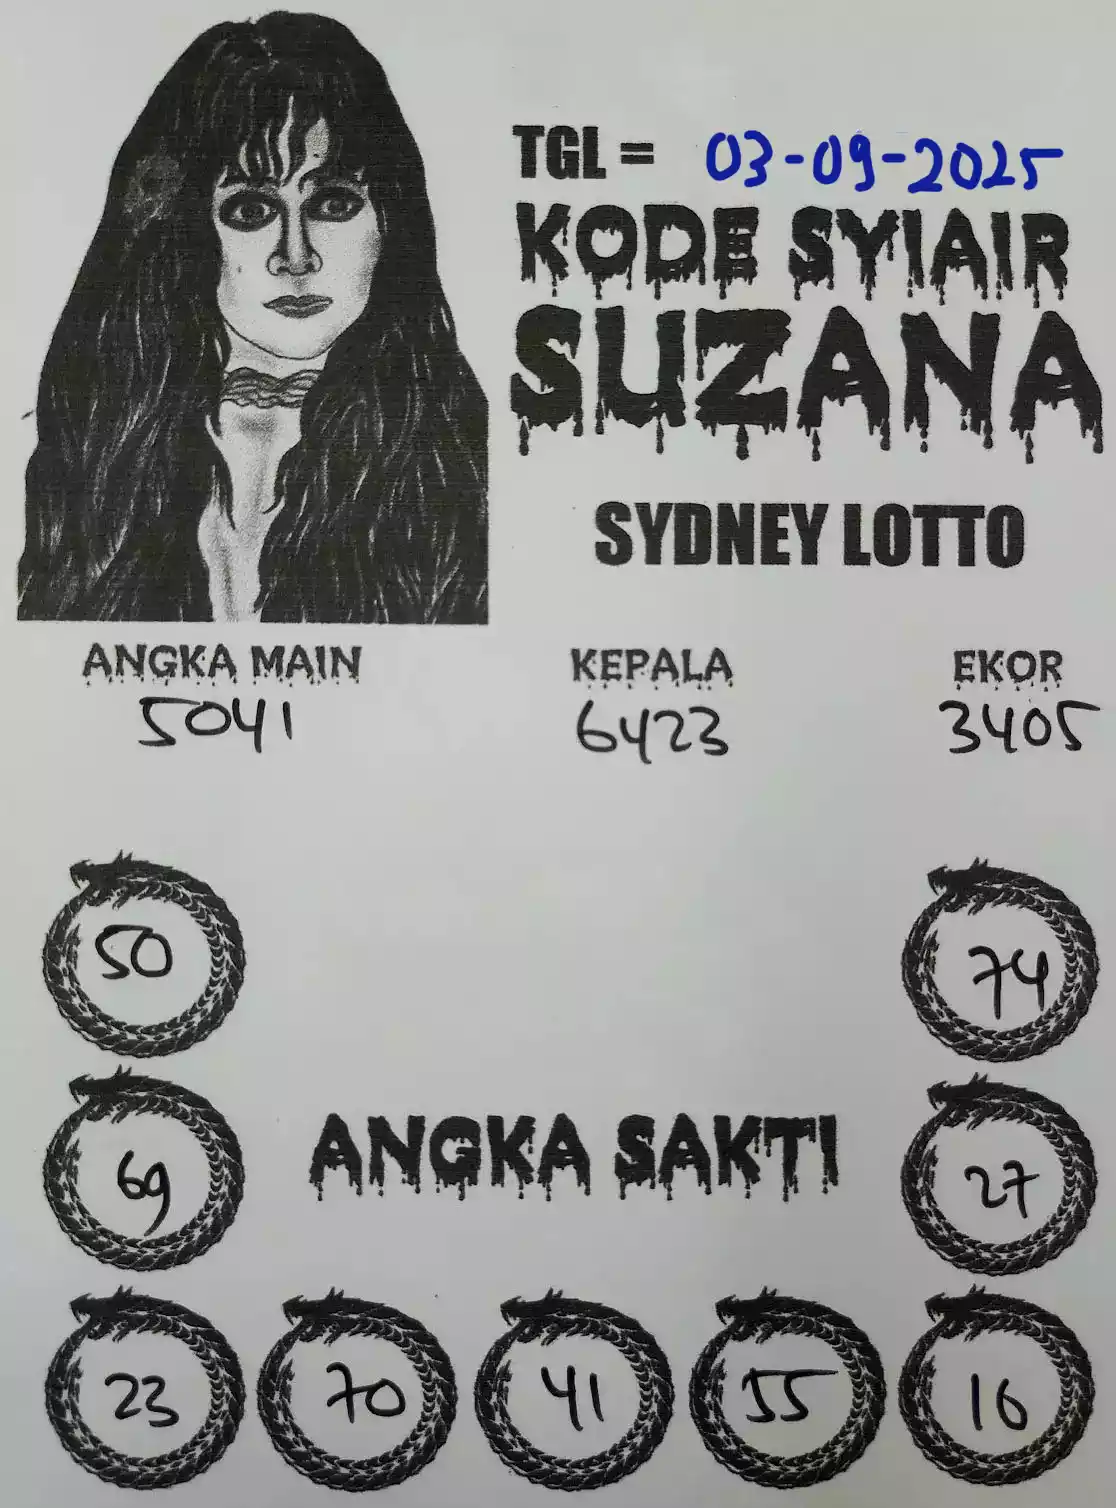 TGL = 03-09-2025
KODE SYIAIR
SUZANA
SYDNEY LOTTO
ANGKA MAIN KEPALA EKOR
5041 6423 3405
50 74
ANGKA SAKTI
69 27
23 70 41 55 16